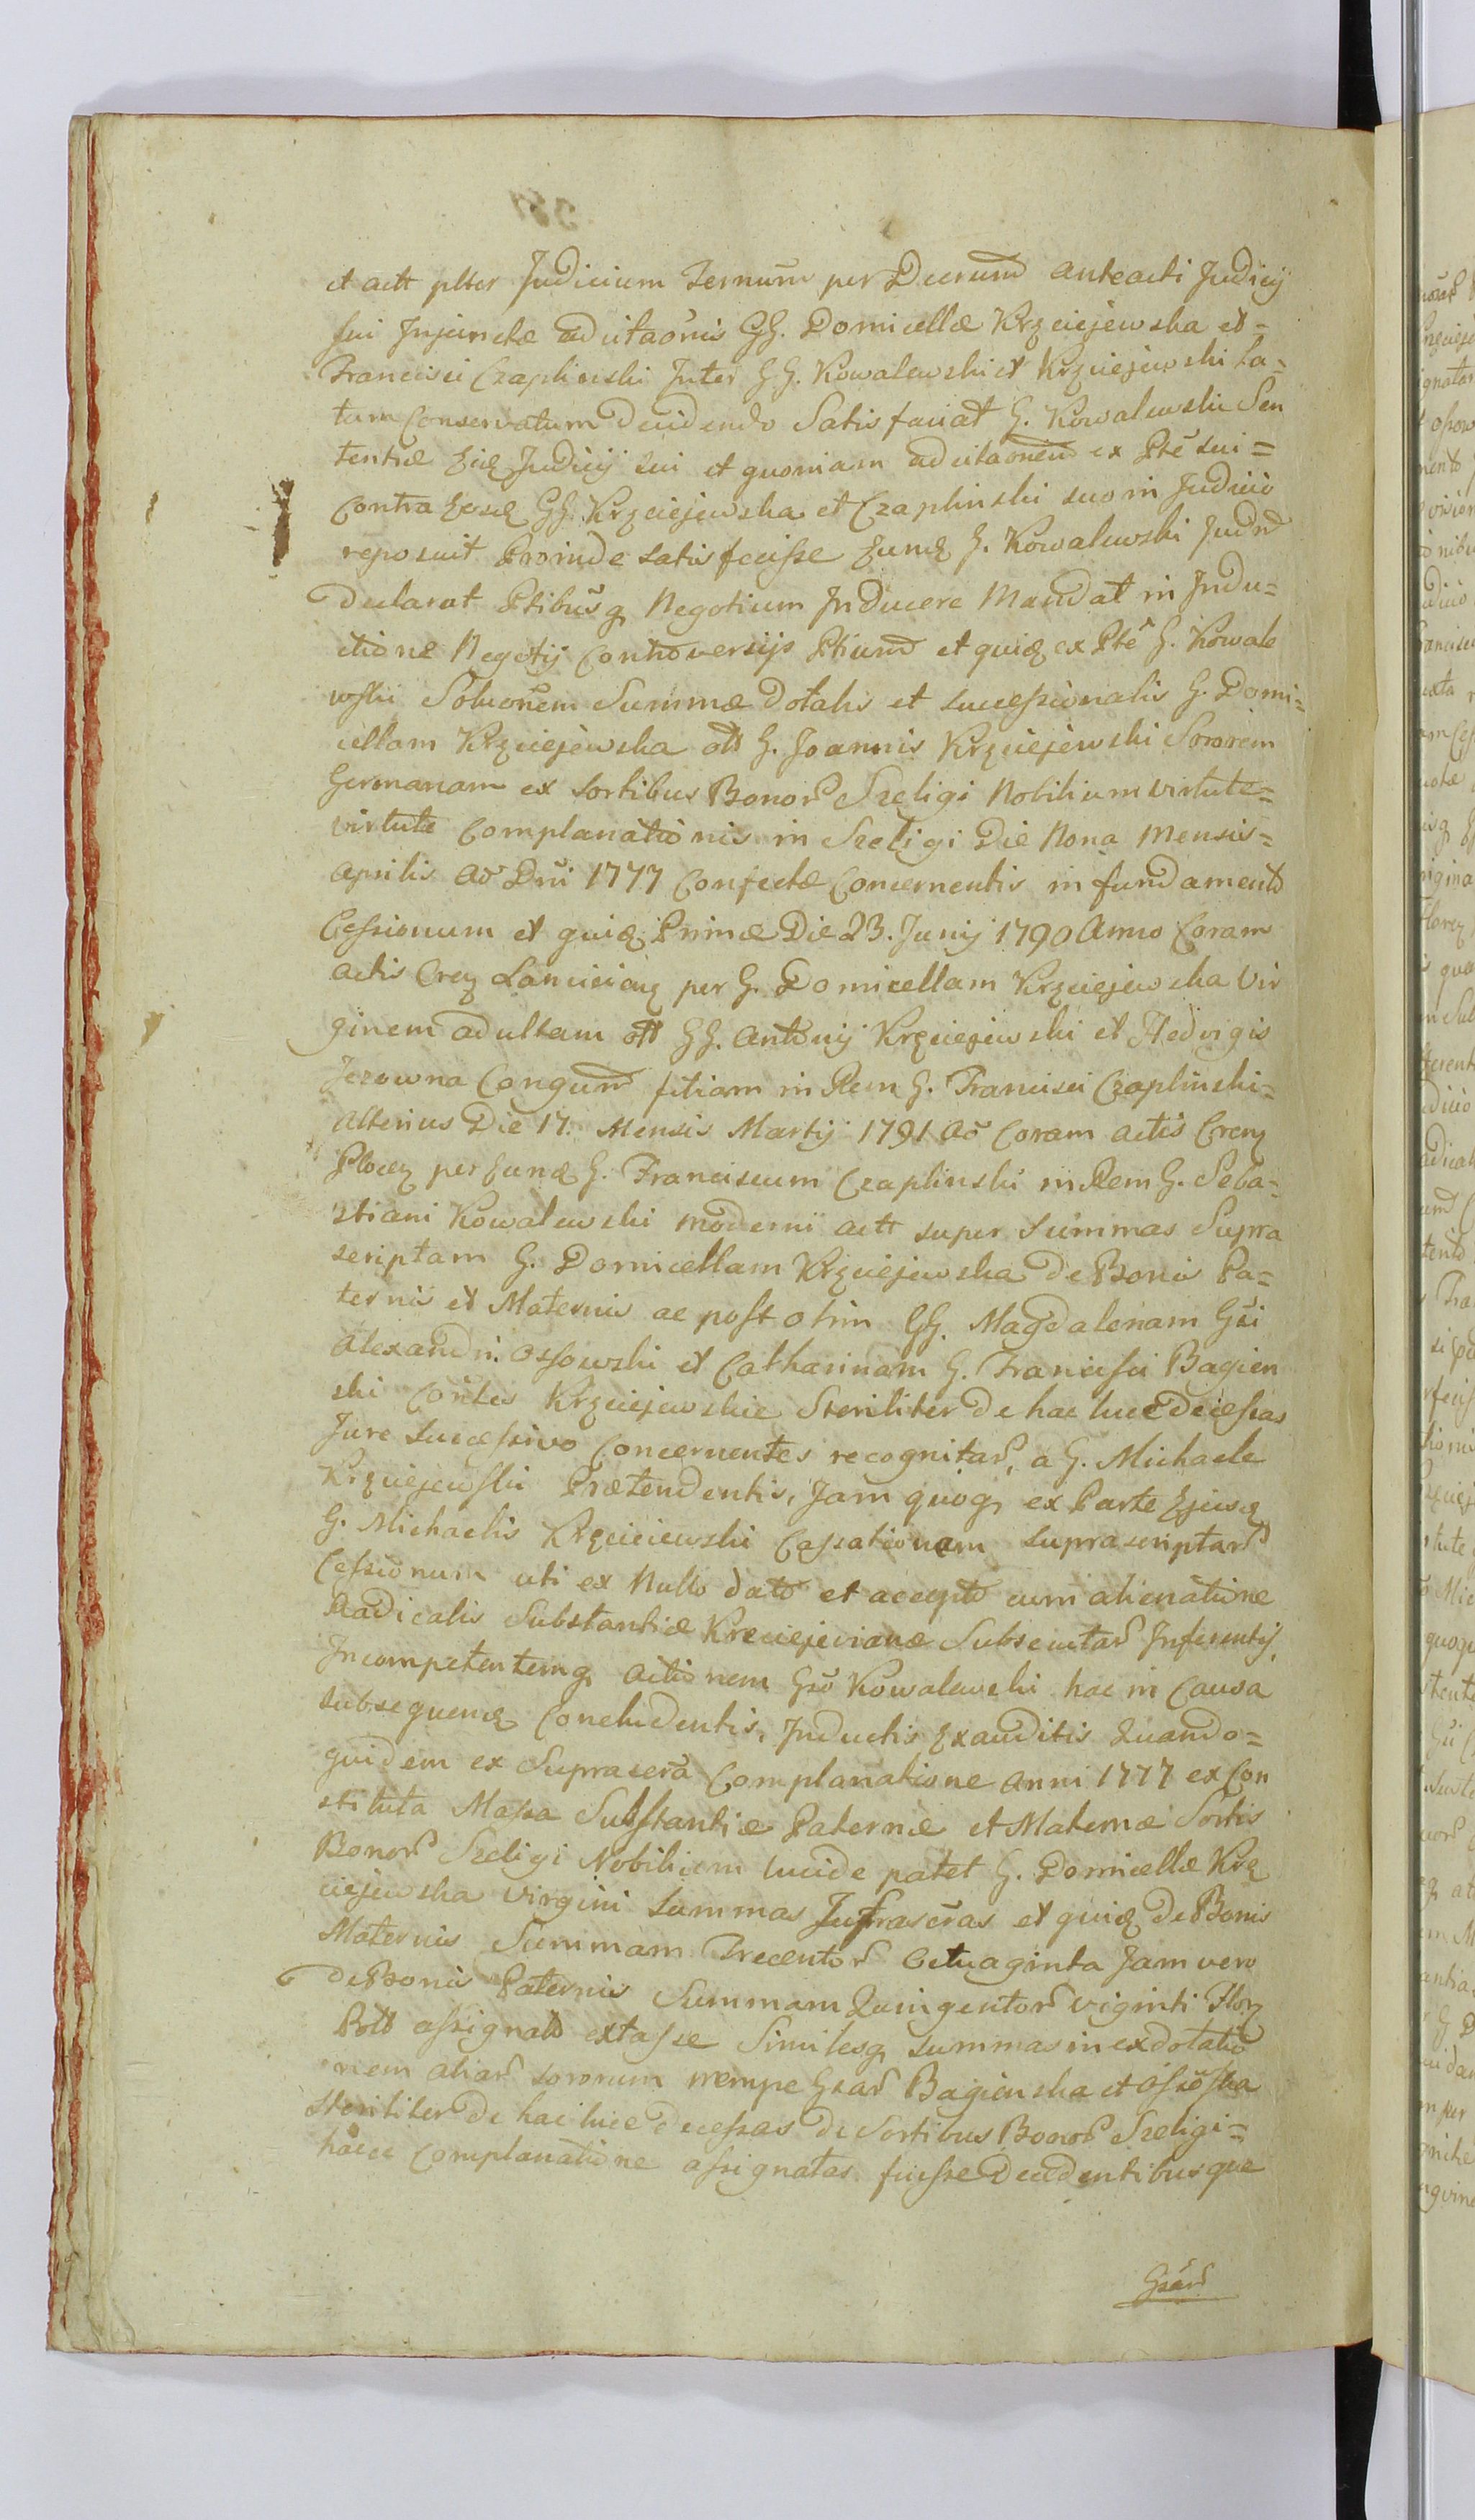 et actt plter Judicium Ternum per Decrum anteacti Judicij
sui Injunctæ adcitaõnis GG. Domicellæ Krzciejewska et=
Francisci Czaplinski Inter GG. Kowalewski et Krzciejewski La=
tum Conservatum decidendo Satisfaciat G. Kowalewski Sen
tentiæ Ejq Judicij sui et quoniam adcitaonem ex Ptẽ sui=
Contra Eosq GG. Krzciejewska et Czaplinski suo in Judicio
reposuit Proinde satisfecisse Eunq G. Kowalewski Judm
declarat Ptibusq Negotium Inducere Mandat in Indu=
ctione Negotij Controversijs Ptium et quiq ex Ptẽ G. Kowale
wski Solucõnem Summæ dotalis et successionalis G. Domi=
cellam Krzciejewska ott G. Joannis Krzciejewski Sororem
Germanam ex Sortibus Bonor Szeligi Nobilium virtute=
virtute Complanationis in Szeligi Die Nona Mensis=
Aprilis Aõ Dñi 1777 Confectæ Concernentis in fundamento
Cessionum et quiq Primæ Die 23. Junij 1790 Anno Coram
actis Crez Lanciciens per G. Domicellam Krzciejewska Vir
ginem adultam ott GG. Antonij Krzciejewski et Hedvigis
Jezowna Congum filiam in Rem G. Francisci Czaplinski=
Alterius Die 17. Mensis Martij 1791 Aõ Coram actis Crenz
Plocenz per Eunq G. Franciscum Czaplinski in Rem G. Seba=
stiani Kowalewski moderni actt super Summas Supra
scriptam G. Domicellam Krzciejewska de Bonis Pa=
ternis et Maternis ac post olim GG. Magdalenam Gsi
Alexandri Ossowski et Catharinam G. Francisci Bagien
ski Contes Krzciejewskie Steriliter de hac luce decessas
Jure Successivo Concernentes recognitar, a G. Michaele
Krzciejewski Prætendentis, Jam quoq ex Parte Ejusq
G. Michaelis Krzciciewski Cassationem suprascriptar
Cessionum uti ex Nullo dato et accepto cum alienatione
Radicalis Substantiæ Krzciejevianæ Subsecutar Inferentij,
Incompetentemq actionem Gso Kowalewski hac in Causa
subsequenq Concludentis, Inductis Exauditis Quando=
quidem ex Suprascrã Complanatione Anni 1777 ex Con
stituta Massa Substantiæ Paternæ et Maternæ Sortis
Bonor Szeligi Nobilium lucide patet G. Domicellæ Krz
ciejewska Virgini Summas Infrascrãs et quiq de Bonis
Maternis Summam Trecentor Octuaginta Jam vero
de Bonis Paternis Summam Quingentor viginti Flor
Polt assignato extasse Similesq summas in exdotatio
nem aliar sororum nempe Gsar Bagienska et Ossoska
Steriliter de hac luce decessas de Sortibus Bonor Szeligi=
hacce Complanatione assignatas fuisse Decedentibusque
Gsar